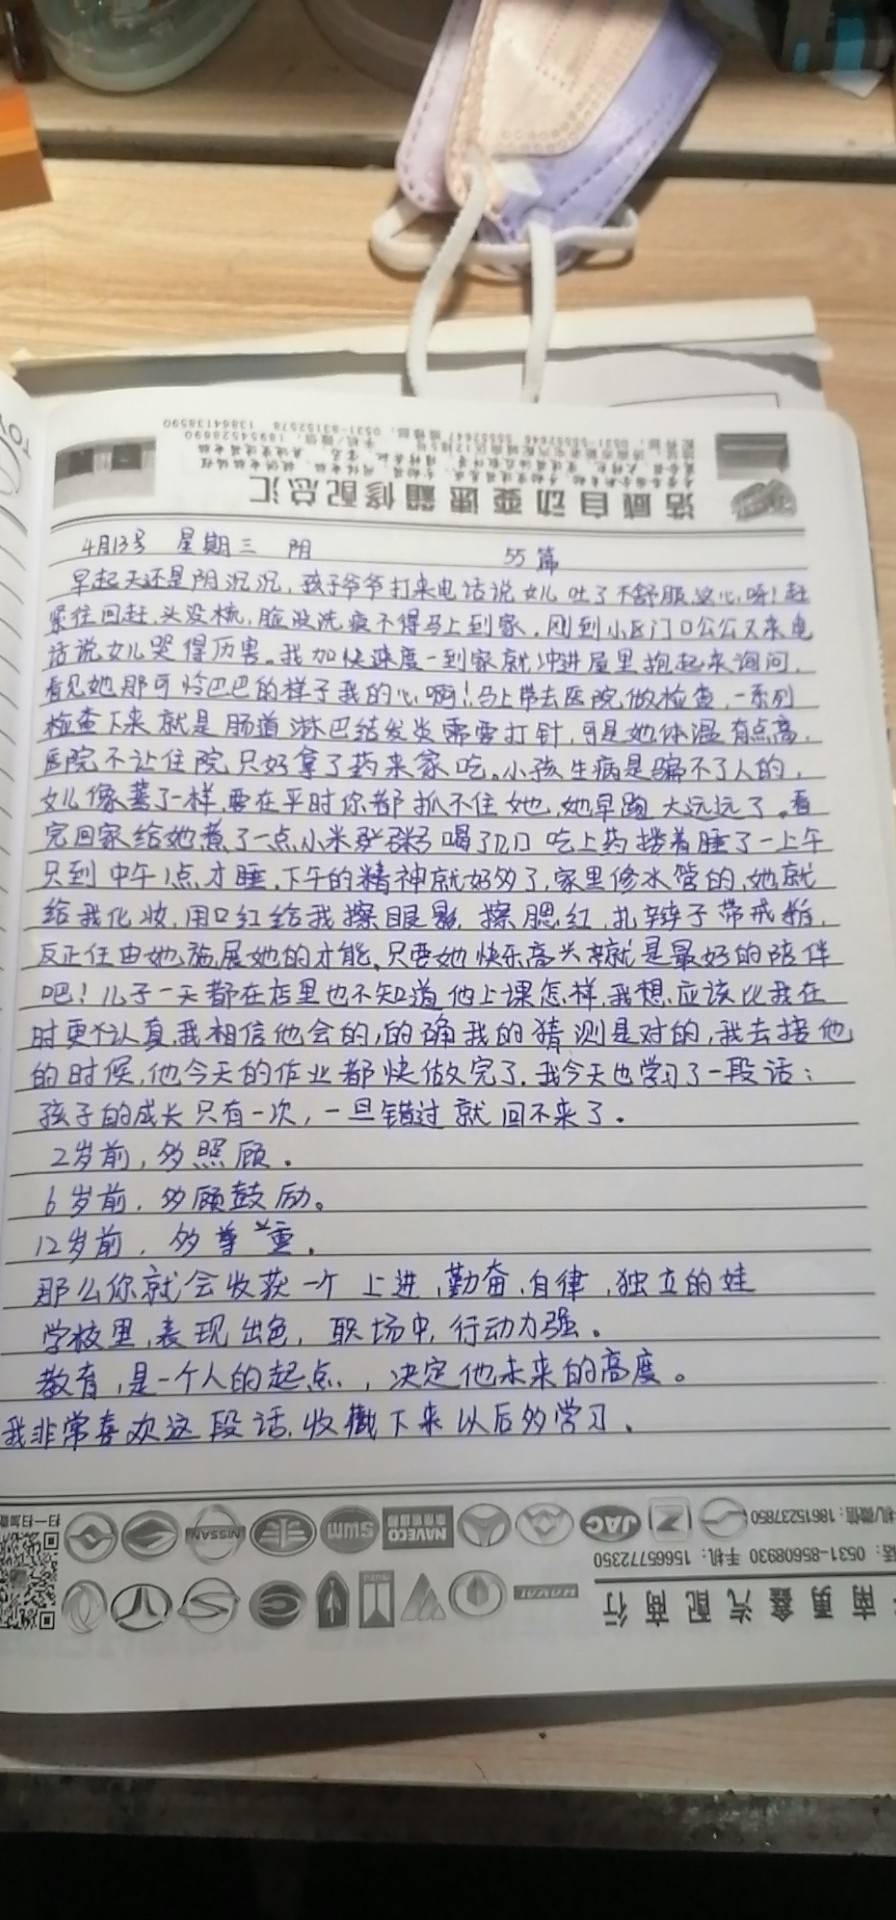 4月13号 星期三 阴 55篇
早起天还是阴沉沉，孩子爷爷打来电话说女儿吐了不舒服这心呀！赶
紧往回赶，头没梳，脸没洗疯不得马上到家，刚到小区门口公公又来电
话说女儿哭得厉害。我加快速度一到家就冲进屋里抱起来询问，
看见她那可怜巴巴的样子我的心啊！马上带去医院做检查，一系列
检查下来就是肠道淋巴结发炎需要打针，可是她体温有点高，
医院不让住院只好拿了药来家吃。小孩生病是骗不了人的，
女儿像蔫了一样，要在平时你都抓不住她，她早跑大远远了。看
完回家给她煮了一点小米粥喝了几口吃上药搂着睡了一上午
只到中午1点才睡，下午的精神就好多了，家里修水管的，她就
给我化妆，用口红给我擦眼影，擦腮红，扎辫子带戒指，
反正任由她施展她的才能，只要她快乐高兴就是最好的陪伴
吧！儿子一天都在店里也不知道他上课怎样，我想应该比我在
时更认真，我相信他会的，的确我的猜测是对的，我去接他
的时候，他今天的作业都快做完了，我今天也学习了一段话：
孩子的成长只有一次，一旦错过就回不来了。
2岁前，多照顾。
6岁前，多顾鼓励。
12岁前，多尊重。
那么你就会收获一个上进，勤奋，自律，独立的娃
学校里，表现出色，职场中，行动力强。
教育，是一个人的起点，决定他未来的高度。
我非常喜欢这段话，收藏下来以后多学习。
浩威自动变速箱修配总汇
0531-83152578 13864138590
南勇鑫汽配商行
0531-85608930 手机：15665772350
机/微信：18615237850
NISSAN
SWM
NAVECO
JAC
HAVAL
扫一扫加微